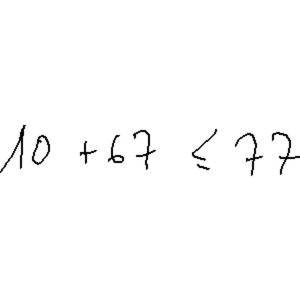 10 + 67 ≤ 77